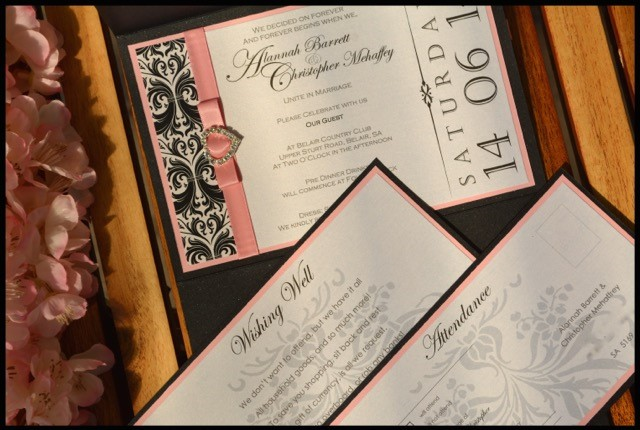 We decided on forever
And forever begins when we,
Alannah Barrett
&
Christopher Mehaffey
Unite in Marriage
Please Celebrate with us
Our Guest
At Belair Country Club
Upper Sturt Road, Belair, SA
At Two O'Clock in the afternoon
Pre Dinner
will commence at
Dress:
We kindly
SATURDAY
14 06 1
Wishing Well
We don't want to offend, but we have it all
All household goods, and so much more!
To save you shopping, sit back and rest
gift of currency is all we request
Attendance
Alannah Barrett &
Christopher Mehaffey
SA
will attend